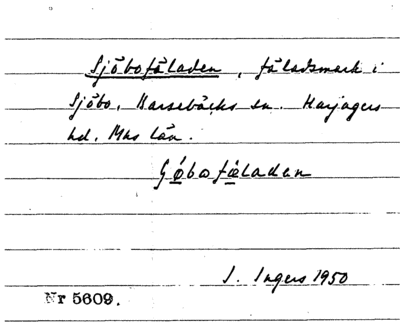 Sjöbofäladen, fäladsmark i
Sjöbo, Barsebäcks sn. Harjagers
hd. Mhs län.
Ǵøbofæladen
I. Ingers 1950
Nr 5609.